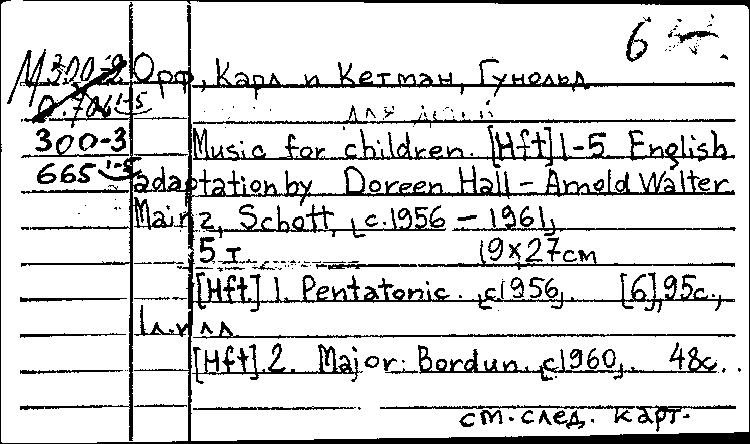 6
М300-9 Орф, Карл и Кетман, Гунольд
0.706 1-5
для детей
300-3 Music for children. [Hft] 1-5. English
665 1-5 adaptation by Doreen Hall - Arnold Walter
Mainz, Schott, [c.1956 - 1961]
5 т 19x27cm
[Hft] 1. Pentatonic. [c1956]. [6], 95c.,
1 л. илл
[Hft] 2. Major: Bordun. [c1960]. 48c.
см. след. карт.